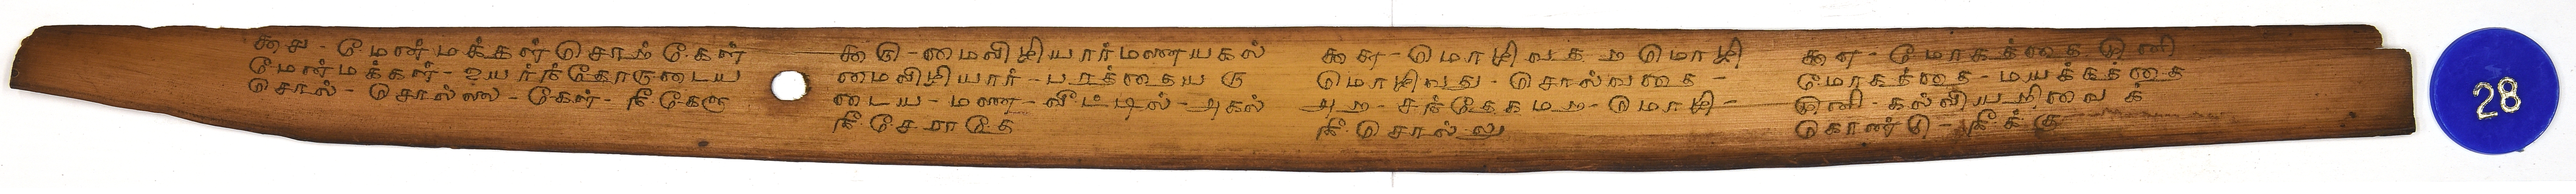 ௯௪ - மேன்மக்கள்சொற்கேள்
மேன்மக்கள் - உயர்ந்தோருடைய
சொல் - சொல்லை - கேள் - நீ கேளு
௯௫ - மைவிழியார்மனையகல்
மைவிழியார் - பரத்தையரு
டைய - மனை - வீட்டில் - அகல்
நீ சேராதே
௯௬ - மொழிவதறமொழி
மொழிவது - சொல்வதை -
அற - சந்தேகமற - மொழி -
நீ சொல்லு
௯௭ - மோகத்தைமுனி
மோகத்தை - மயக்கத்தை
முனி - கல்வியறிவைக்
கொண்டு - நீக்கு
28